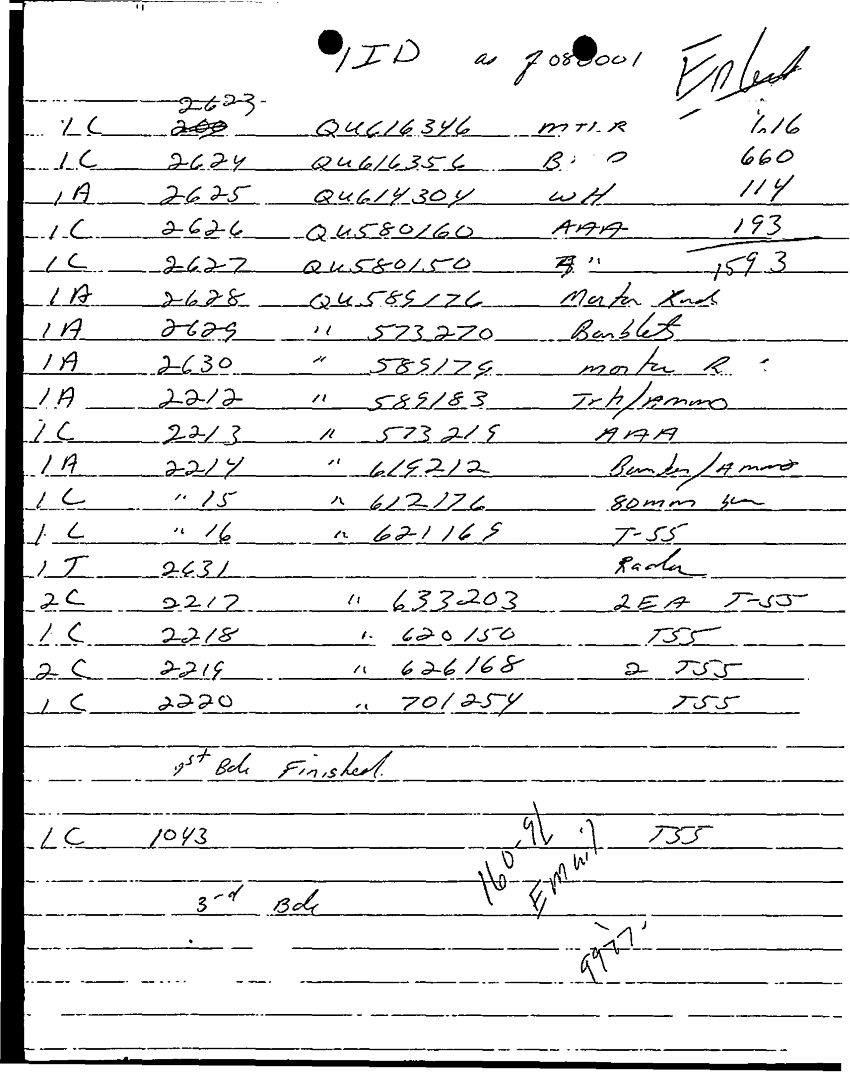 1ID as of 080001
2623
1C QU616346 MTLR
1C 2624 QU616356 660
1A 2625 QU614304 WH 114
1C 2626 QU580160 AAA 193
1C 2627 QU580150 " 1593
1A 2628 QU589176 Mortar
1A 2629 " 573270 Bomblets
1A 2630 " 589179 mortar R
1A 2212 " 589183 Trk/Ammo
1C 2213 " 573219 AAA
1A 2214 " 619212 Bunker/Ammo
1C " 15 " 612176 80mm gun
1C " 16 " 621169 T-55
1T 2631 Radar
2C 2217 " 633203 2EA T-55
1C 2218 " 620150 T55
2C 2219 " 626168 2 T55
1C 2220 " 701254 T55
1st Bde Finished.
1C 1043 T55
160-91
Email
3rd Bde